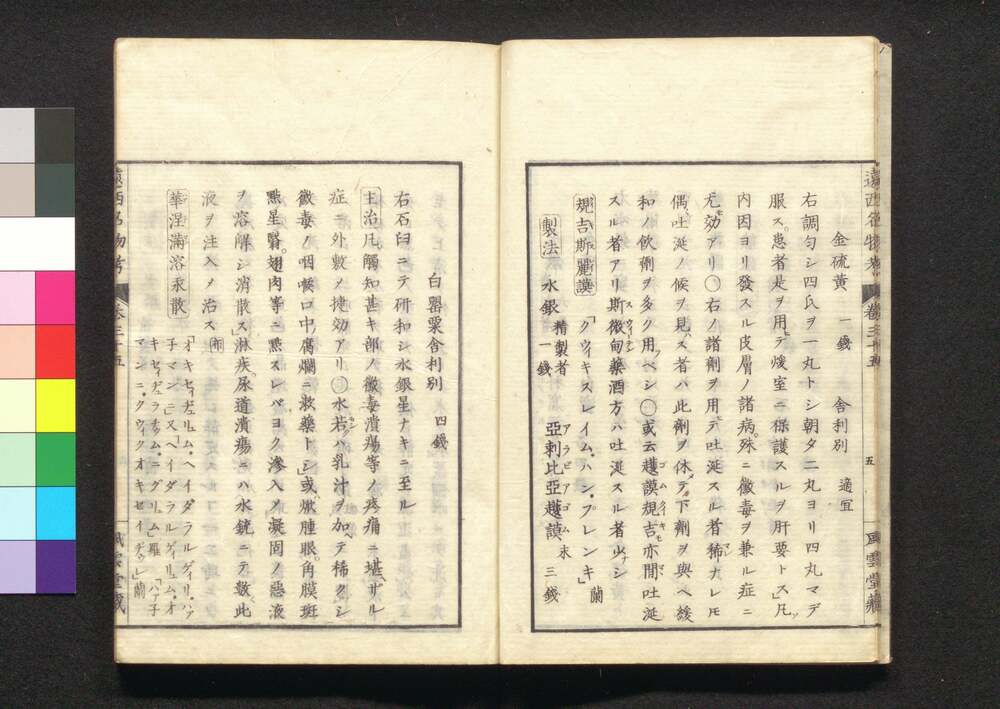 遠西名物考 卷三十五 五 風雲堂藏
金硫黃 一錢 舎利別 適宜
右調勻シ四氏ヲ一丸トシ朝タ二丸ヨリ四丸マデ
服ス患者是ヲ用テ煖室ニ保護スルヲ肝要トス」凡ソ
内因ヨリ發スル皮膚ノ諸病殊ニ黴毒ヲ兼ル症ニ
尤モ効アリ〇右ノ諸劑ヲ用テ吐涎スル者稀ナレドモ
偶吐涎ノ候ヲ見ス者ハ此劑ヲ休メテ下劑ヲ與ヘ緩
和ノ飲劑ヲ多ク用ヘシ〇或云護謨規吉亦間吐涎
スル者アリ斯微甸藥酒方ハ吐涎スル者少ナシ
規吉斯麗謨 「クウィキスレイム・ハン・プレンキ」蘭
製法 水銀 精製者 一錢 亞剌比亞護謨 末 三錢
白罌粟舎利別 四錢
右石臼ニテ研和シ水銀星ナキニ至ル
主治 凡觸知甚キ部ノ黴毒潰瘍等ノ疼痛ニ堪ザル
症ニ外敷ノ捷効アリ〇水若ハ乳汁ヲ加ヘテ稀クシ
黴毒ノ咽喉口中腐爛ニ漱藥トシ」或㷔腫眼角膜斑
㸃星翳翅肉等ニ㸃スレバヨク滲入ノ凝固ノ惡液
ヲ溶解シ消散ス」淋疾尿道潰瘍ニハ水銃ニテ數此
液ヲ注入メ治ス 布
華涅滿溶汞散 「オキセィヂューム・ヘイダラルゲィリ・ハア
子マンニ」又「ヘイダラルゲィリュム・オ
キセィヂュラチュム・ニグリュム」羅 「ハア子
マンニ・クウィクオキセイデゥレ」蘭
遠西名物考 卷三十五 風雲堂藏